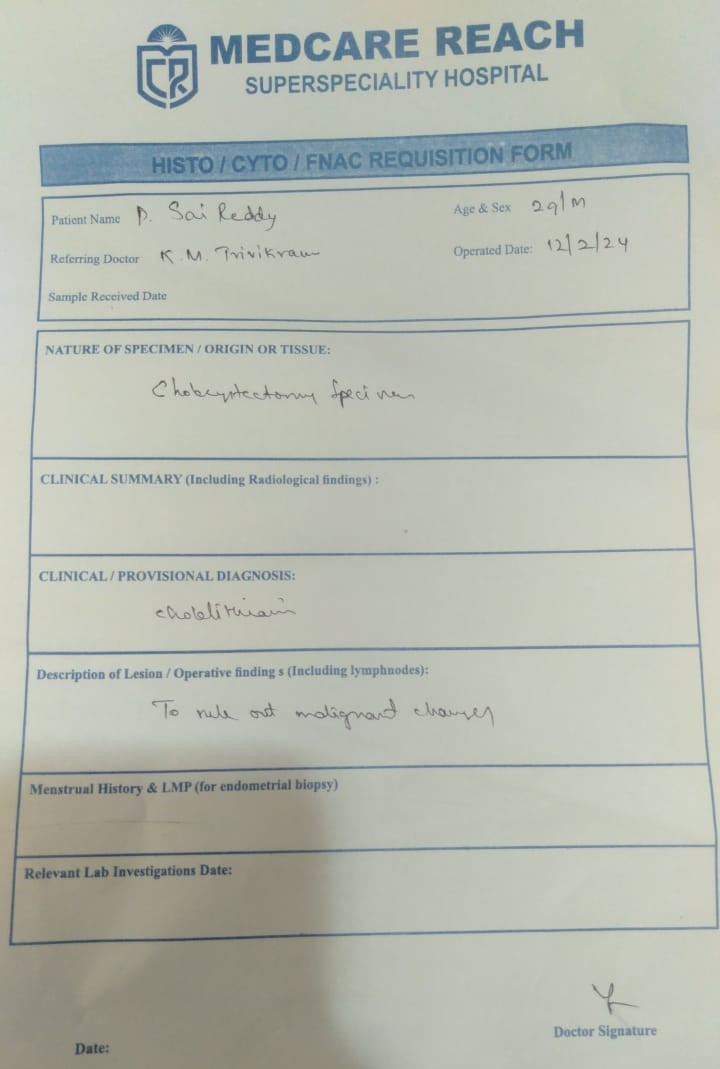 MEDCARE REACH
SUPERSPECIALITY HOSPITAL
HISTO / CYTO / FNAC REQUISITION FORM
Patient Name P. Sai Reddy Age & Sex 29/M
Referring Doctor K.M. Trivikram Operated Date: 12/2/24
Sample Received Date
NATURE OF SPECIMEN / ORIGIN OR TISSUE:
Specimen
CLINICAL SUMMARY (Including Radiological findings) :
CLINICAL / PROVISIONAL DIAGNOSIS:
Description of Lesion / Operative finding s (Including lymphnodes):
To rule out malignant changes
Menstrual History & LMP (for endometrial biopsy)
Relevant Lab Investigations Date:
Doctor Signature
Date: